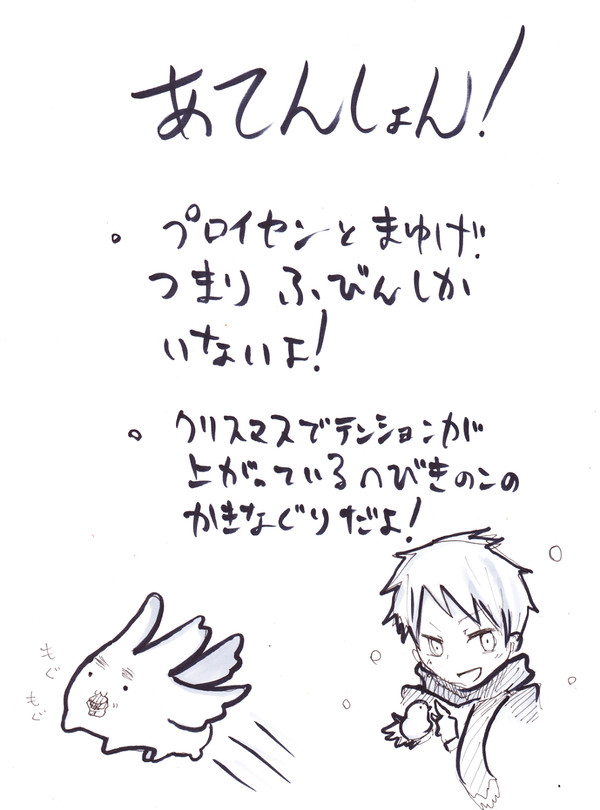 あてんしょん!
。プロイセンとまゆげ!
つまりふびんしか
いないよ!
。クリスマスでテンションが
上がっているへびきのこの
かきなぐりだよ!
もぐ
もぐ